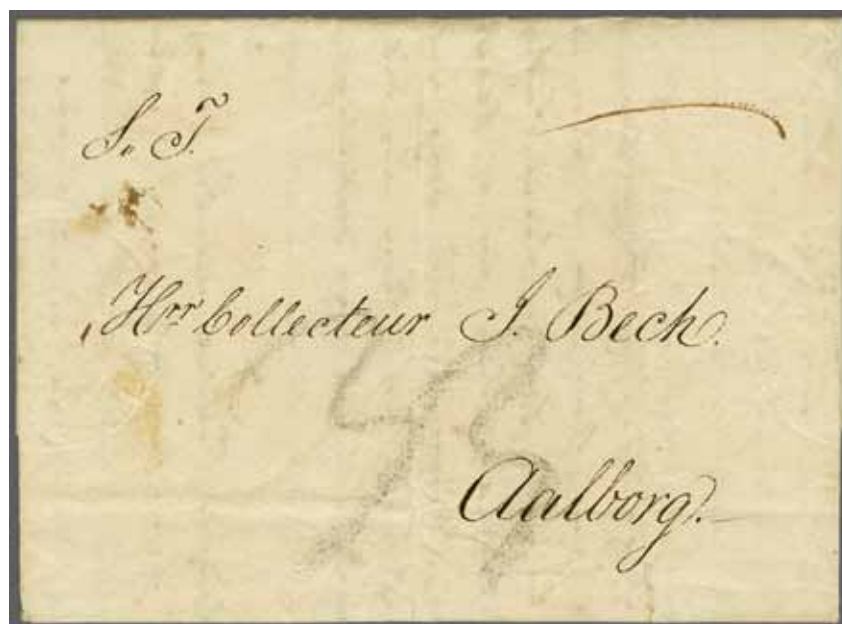 S. T.
Hrr Collecteur J. Bech.
Aalborg.